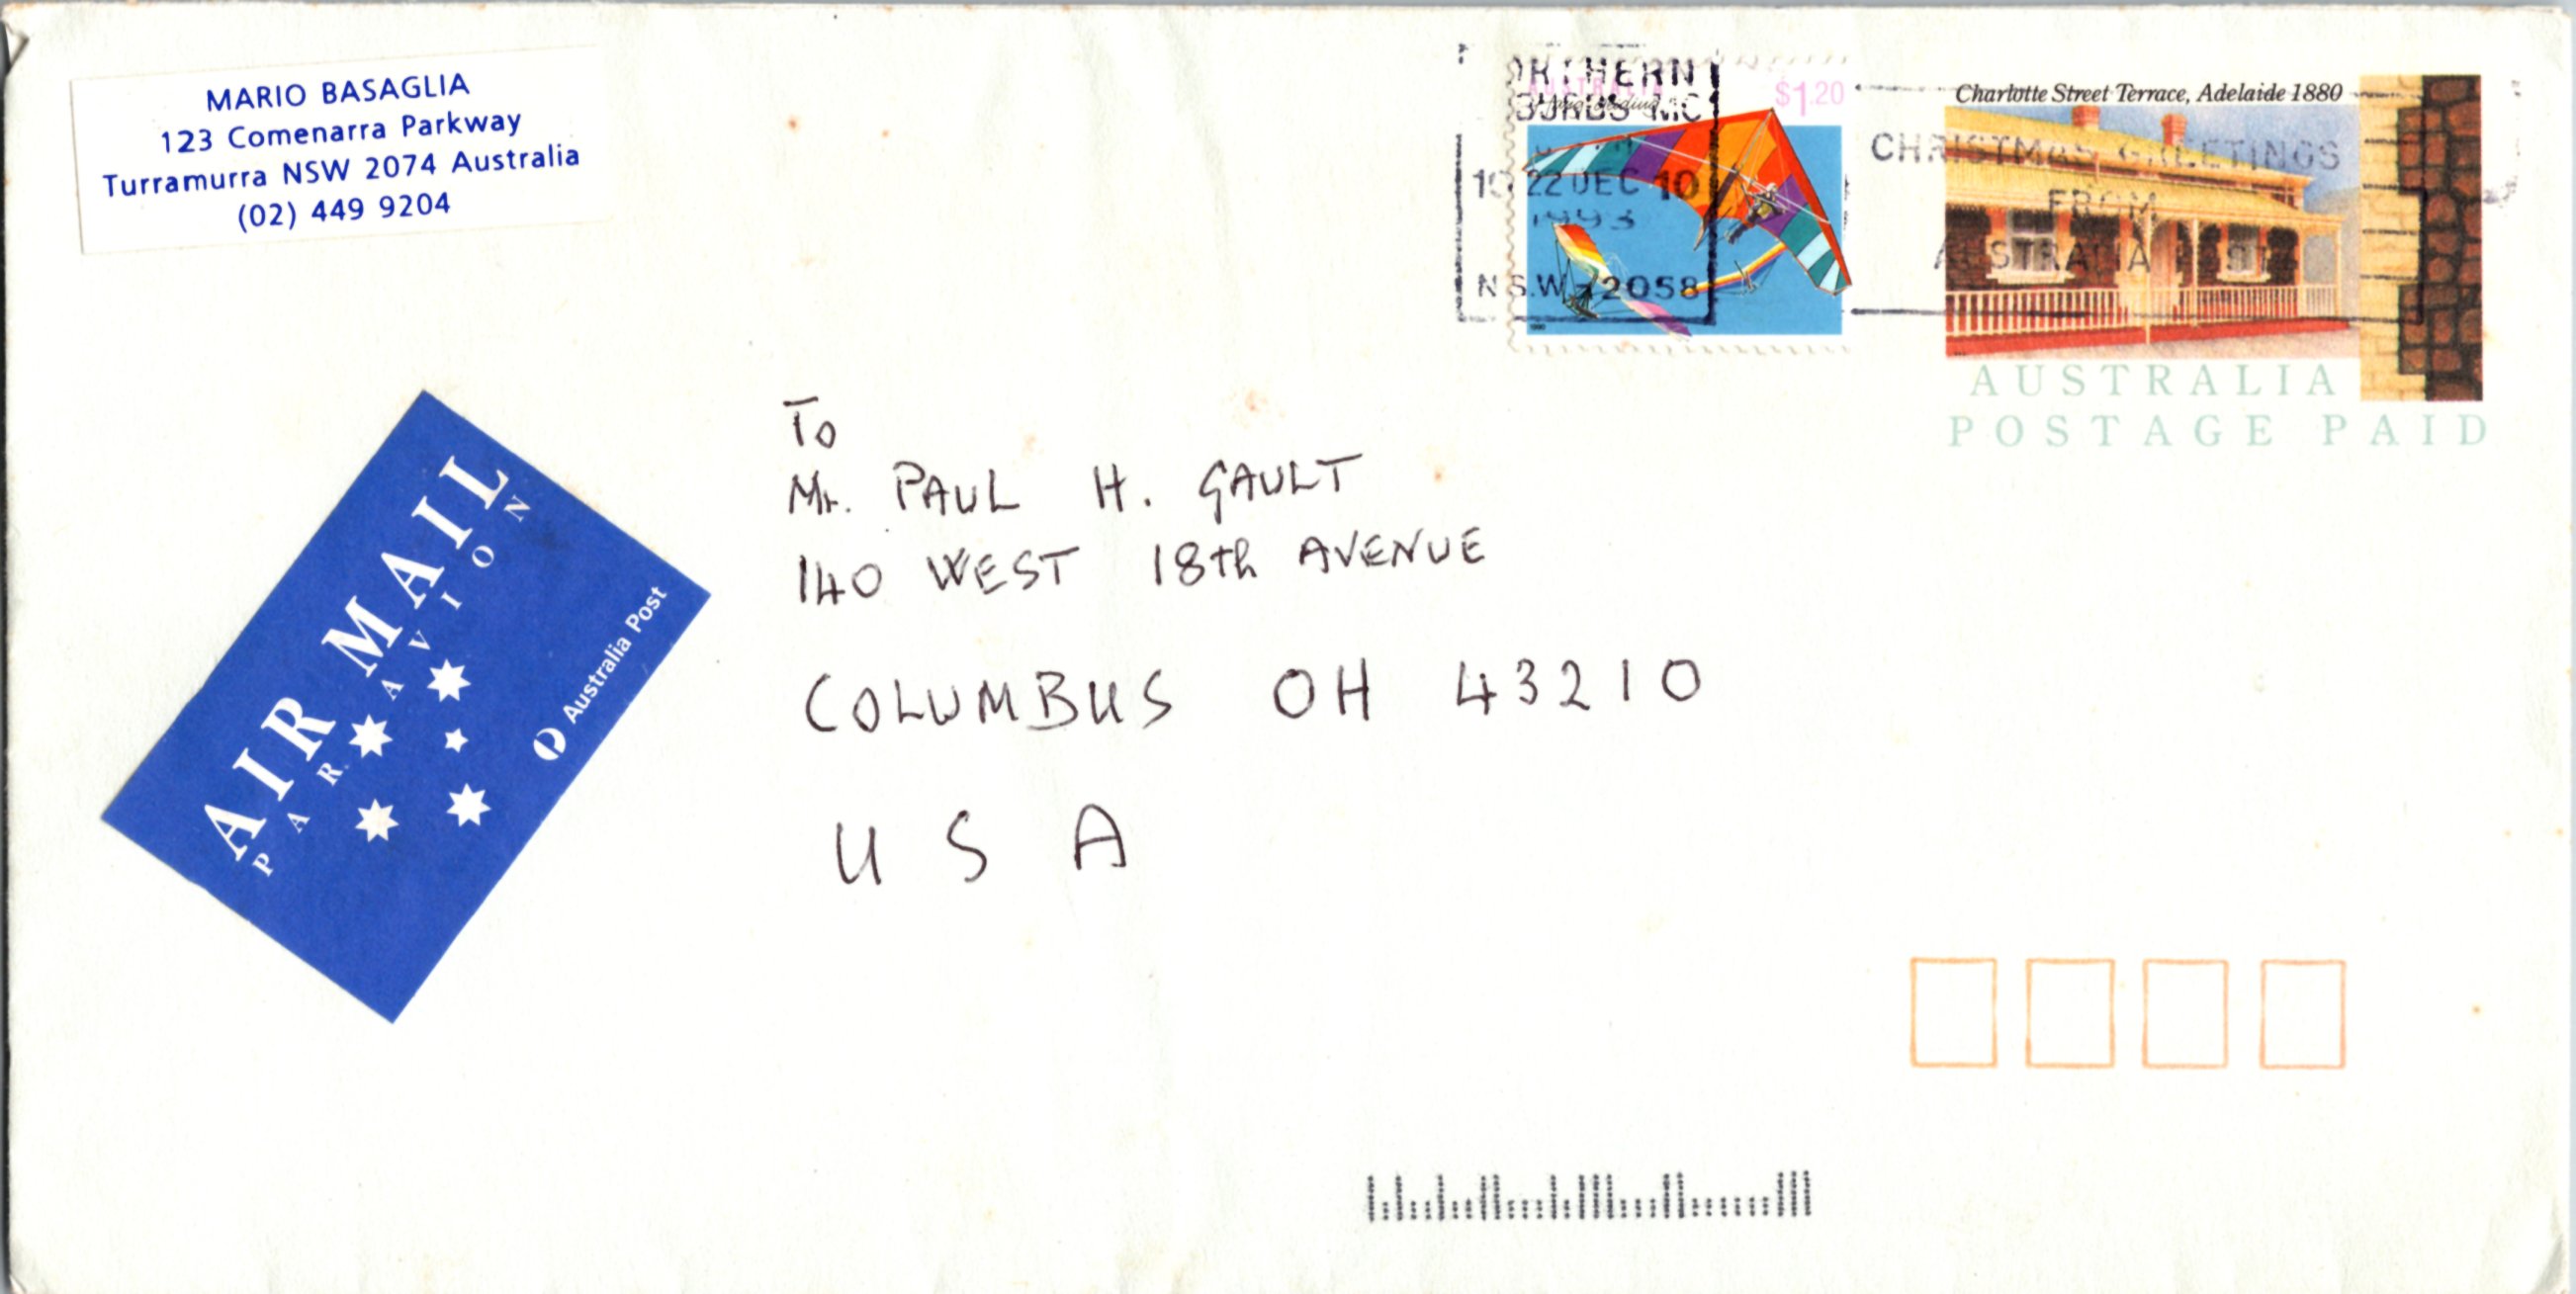 MARIO BASAGLIA
123 Comenarra Parkway
Turramurra NSW 2074 Australia
(02) 449 9204
AUSTRALIA
$1.20
22 DEC 10
1993
N.S.W. - 2058
Charlotte Street Terrace, Adelaide 1880
CHRISTMAS GREETINGS
FROM
AUSTRALIA POST
AUSTRALIA
POSTAGE PAID
To
Mr. PAUL H. GAULT
140 WEST 18th AVENUE
COLUMBUS OH 43210
USA
AIR MAIL
PAR AVION
Australia Post